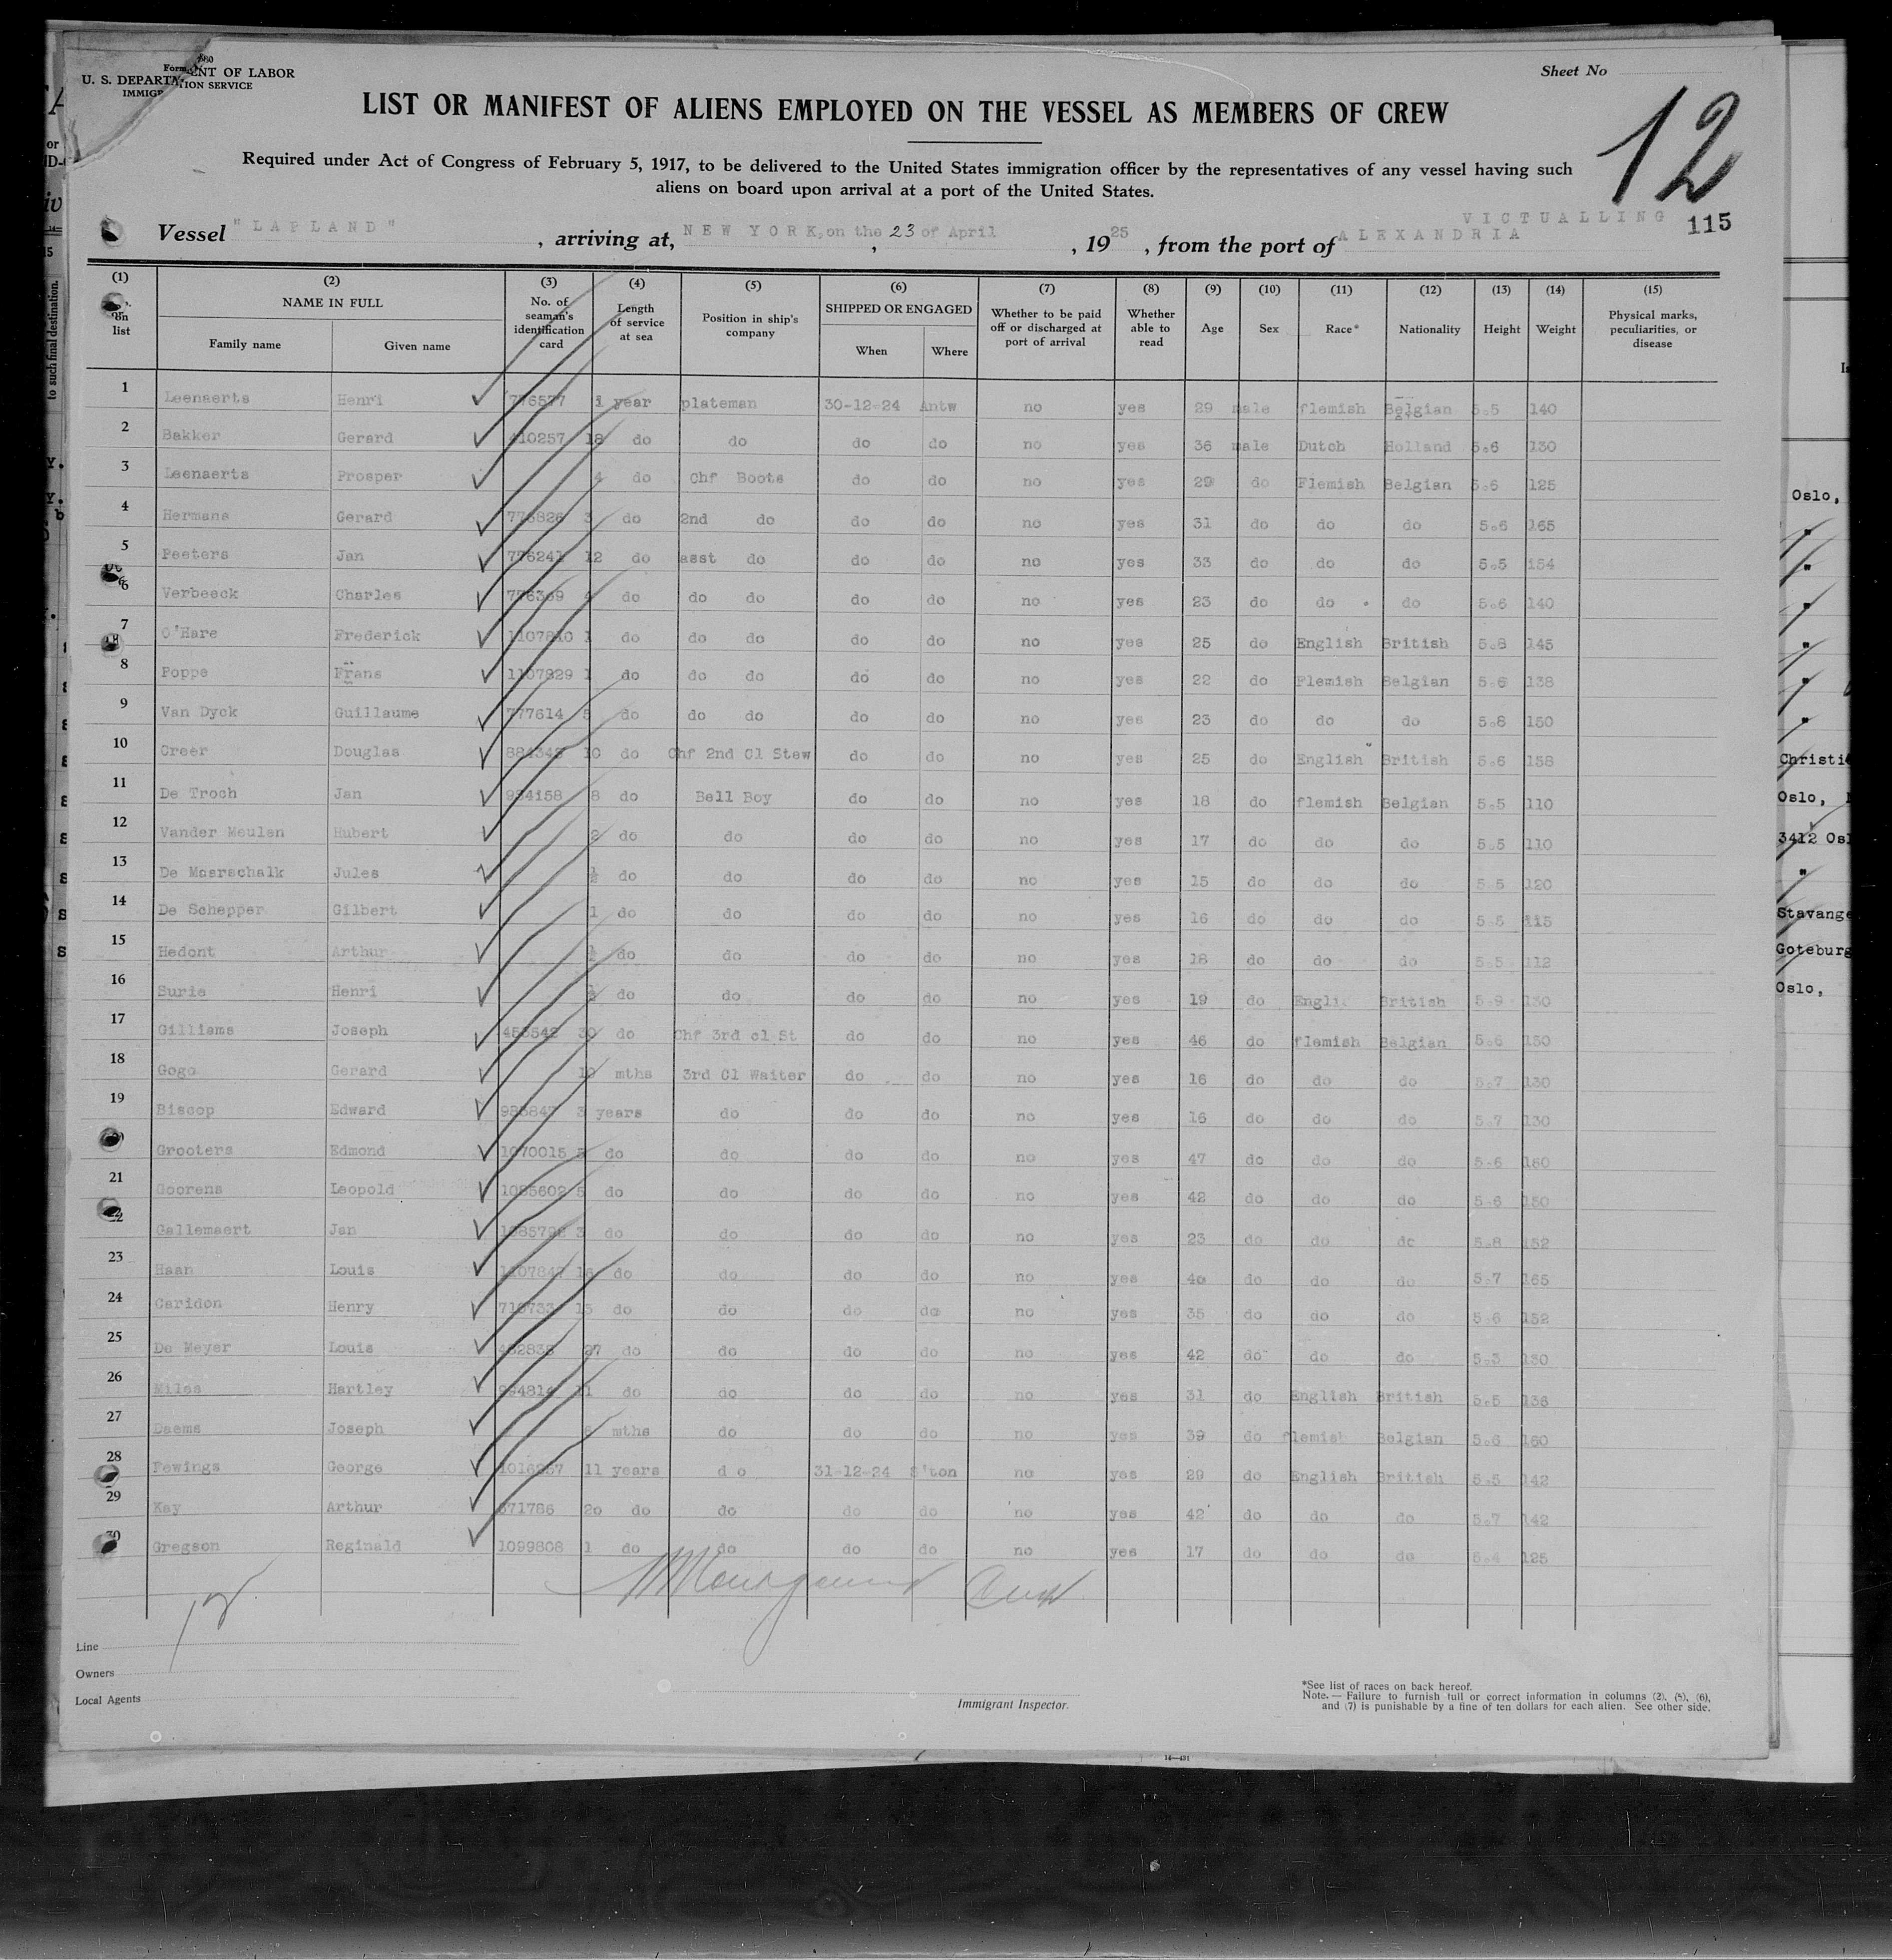 Form 680
U. S. DEPARTMENT OF LABOR
IMMIGRATION SERVICE
Sheet No
LIST OR MANIFEST OF ALIENS EMPLOYED ON THE VESSEL AS MEMBERS OF CREW
12
Required under Act of Congress of February 5, 1917, to be delivered to the United States immigration officer by the representatives of any vessel having such
aliens on board upon arrival at a port of the United States.
VICTUALLING
115
Vessel "LAPLAND", arriving at, NEW YORK, on the 23 of April, 1925, from the port of ALEXANDRIA
(1) (2) (3) (4) (5) (6) (7) (8) (9) (10) (11) (12) (13) (14) (15)
on list NAME IN FULL Family name Given name No. of seaman's identification card Length of service at sea Position in ship's company SHIPPED OR ENGAGED When Where Whether to be paid off or discharged at port of arrival Whether able to read Age Sex Race* Nationality Height Weight Physical marks, peculiarities, or disease
1 Leenaerts Henri 776577 1 year plateman 30-12-24 Antw no yes 29 male flemish Belgian 5.5 140
2 Bakker Gerard 410257 18 do do do do no yes 36 male Dutch Holland 5.6 130
3 Leenaerts Prosper 4 do Chf Boots do do no yes 29 do Flemish Belgian 5.6 125
4 Hermans Gerard 776826 3 do 2nd do do do no yes 31 do do do 5.6 165
5 Peeters Jan 776241 12 do asst do do do no yes 33 do do do 5.5 154
6 Verbeeck Charles 776369 4 do do do do do no yes 23 do do do 5.6 140
7 O'Hare Frederick 1107810 1 do do do do do no yes 25 do English British 5.8 145
8 Poppe Frans 1107929 1 do do do do do no yes 22 do Flemish Belgian 5.6 138
9 Van Dyck Guillaume 777614 5 do do do do do no yes 23 do do do 5.8 150
10 Creer Douglas 884342 10 do Chf 2nd Cl Stew do do no yes 25 do English British 5.6 158
11 De Troch Jan 934158 8 do Bell Boy do do no yes 18 do flemish Belgian 5.5 110
12 Vander Meulen Hubert 2 do do do do no yes 17 do do do 5.5 110
13 De Maerschalk Jules ½ do do do do no yes 15 do do do 5.5 120
14 De Schepper Gilbert 1 do do do do no yes 16 do do do 5.5 115
15 Hedont Arthur ½ do do do do no yes 18 do do do 5.5 112
16 Surie Henri ½ do do do do no yes 19 do Englis British 5.9 130
17 Gilliams Joseph 453542 30 do Chf 3rd cl St do do no yes 46 do flemish Belgian 5.6 150
18 Gogo Gerard 10 mths 3rd Cl Waiter do do no yes 16 do do do 5.7 130
19 Biscop Edward 985847 3 years do do do no yes 16 do do do 5.7 130
Grooters Edmond 1070015 5 do do do do no yes 47 do do do 5.6 160
21 Goorens Leopold 1085602 5 do do do do no yes 42 do do do 5.6 150
22 Gallemaert Jan 1085798 3 do do do do no yes 23 do do do 5.8 152
23 Haan Louis 1107842 16 do do do do no yes 40 do do do 5.7 165
24 Caridon Henry 716733 15 do do do do no yes 35 do do do 5.6 152
25 De Meyer Louis 452838 27 do do do do no yes 42 do do do 5.3 150
26 Miles Hartley 994814 11 do do do do no yes 31 do English British 5.5 136
27 Daems Joseph mths do do do no yes 39 do flemish Belgian 5.6 160
28 Fewings George 1016257 11 years do 31-12-24 S'ton no yes 29 do English British 5.5 142
29 Kay Arthur 671786 20 do do do do no yes 42 do do do 5.7 142
30 Gregson Reginald 1099808 1 do do do do no yes 17 do do do 5.4 125
Line
Owners
Local Agents
Immigrant Inspector.
*See list of races on back hereof.
Note.— Failure to furnish full or correct information in columns (2), (5), (6),
and (7) is punishable by a fine of ten dollars for each alien. See other side.
14—431
to such final destination.
Oslo,
Christi
Oslo,
3412 Osl
Stavange
Goteburg
Oslo,